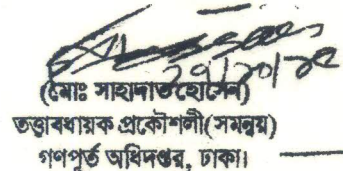 (মোঃ সাহাদাত হোসেন)
তত্ত্বাবধায়ক প্রকৌশলী(সমন্বয়)
গণপূর্ত অধিদপ্তর, ঢাকা।